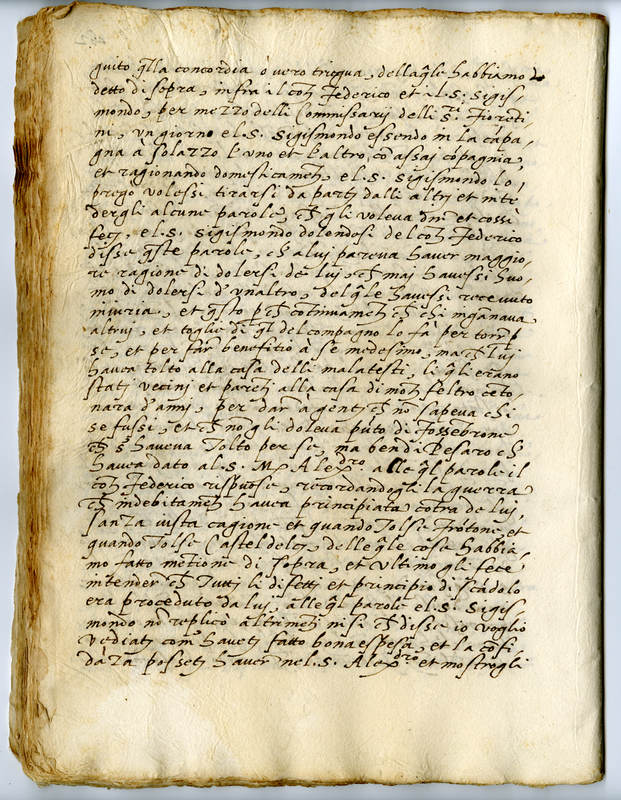 guito q̃lla concordia ò vero tricqua, della q̃le habbiamo
detto di sopra, infra al coñ Federico et al. S. Sigis-
mondo, per mezzo delli Commissarij delli S.ri Fioreti-
ni, un giorno el. S. Sigismondo essendo ni la cãpa,
gna à solazzo l'uno et l'altro, cõ assaj cõpagnia,
et ragionando domesticameñ, el. S. Sigismondo lo,
prego volessi tirarsi da partj dalli altrj et inte
dergli alcune parole, cħ gli voleva dir̃ et cossi
fecj, el. S. Sigismondo dolendosi del coñ Federico
disse q̃ste parole, cħ a lui pareva haver maggio,
re ragione di dolersi de lui, cħ maj havessi huo-
mo di dolersi d'un altro, del q̃le havessi recevuto
iniuria, et q̃sto p̃cħ cõtinuameñ cħ chi inganava
altruj, et toglie di q̃l del compagno lo fà per torr̃
se, et per far benefitio à se medesimo, ma cħ luj
havea tolto alla casa delli malatesti, li q̃li erano
statj vecini et pareñ alla casa di moñ feltro ceto-
nara d'anni, per dar à gentj cħ nõ sapeva chi
se fussi, et cħ nõ gli doleva pũto di Fossebrone
cħ s'haveva tolto per se, ma ben di Pesaro cħ
havea dato al. S. Mr Alexdro. alle q̃l parole il
coñ Federico rispuose, recordandogli la guerra
cħ indebitameñ havea principiata cõtra de luj,
sanza iusta cagione et quando tolse Frõtone, et
quando tolse Castel delcj, delle q̃le cose habbia,
mo fatto mẽtione di sopra, et ultimo gli fece
intender cħ tuttj li difetti et principio di scãdolo
era proceduto da luj, alle q̃l parole el. S. Sigis
mondo nõ replicò altrimetj ni si cħ disse io voglio
vediatj com' havetj fatto bona espesa, et la cõfi,
dãza possetj haver nel. S. Alexdro et mostrogli